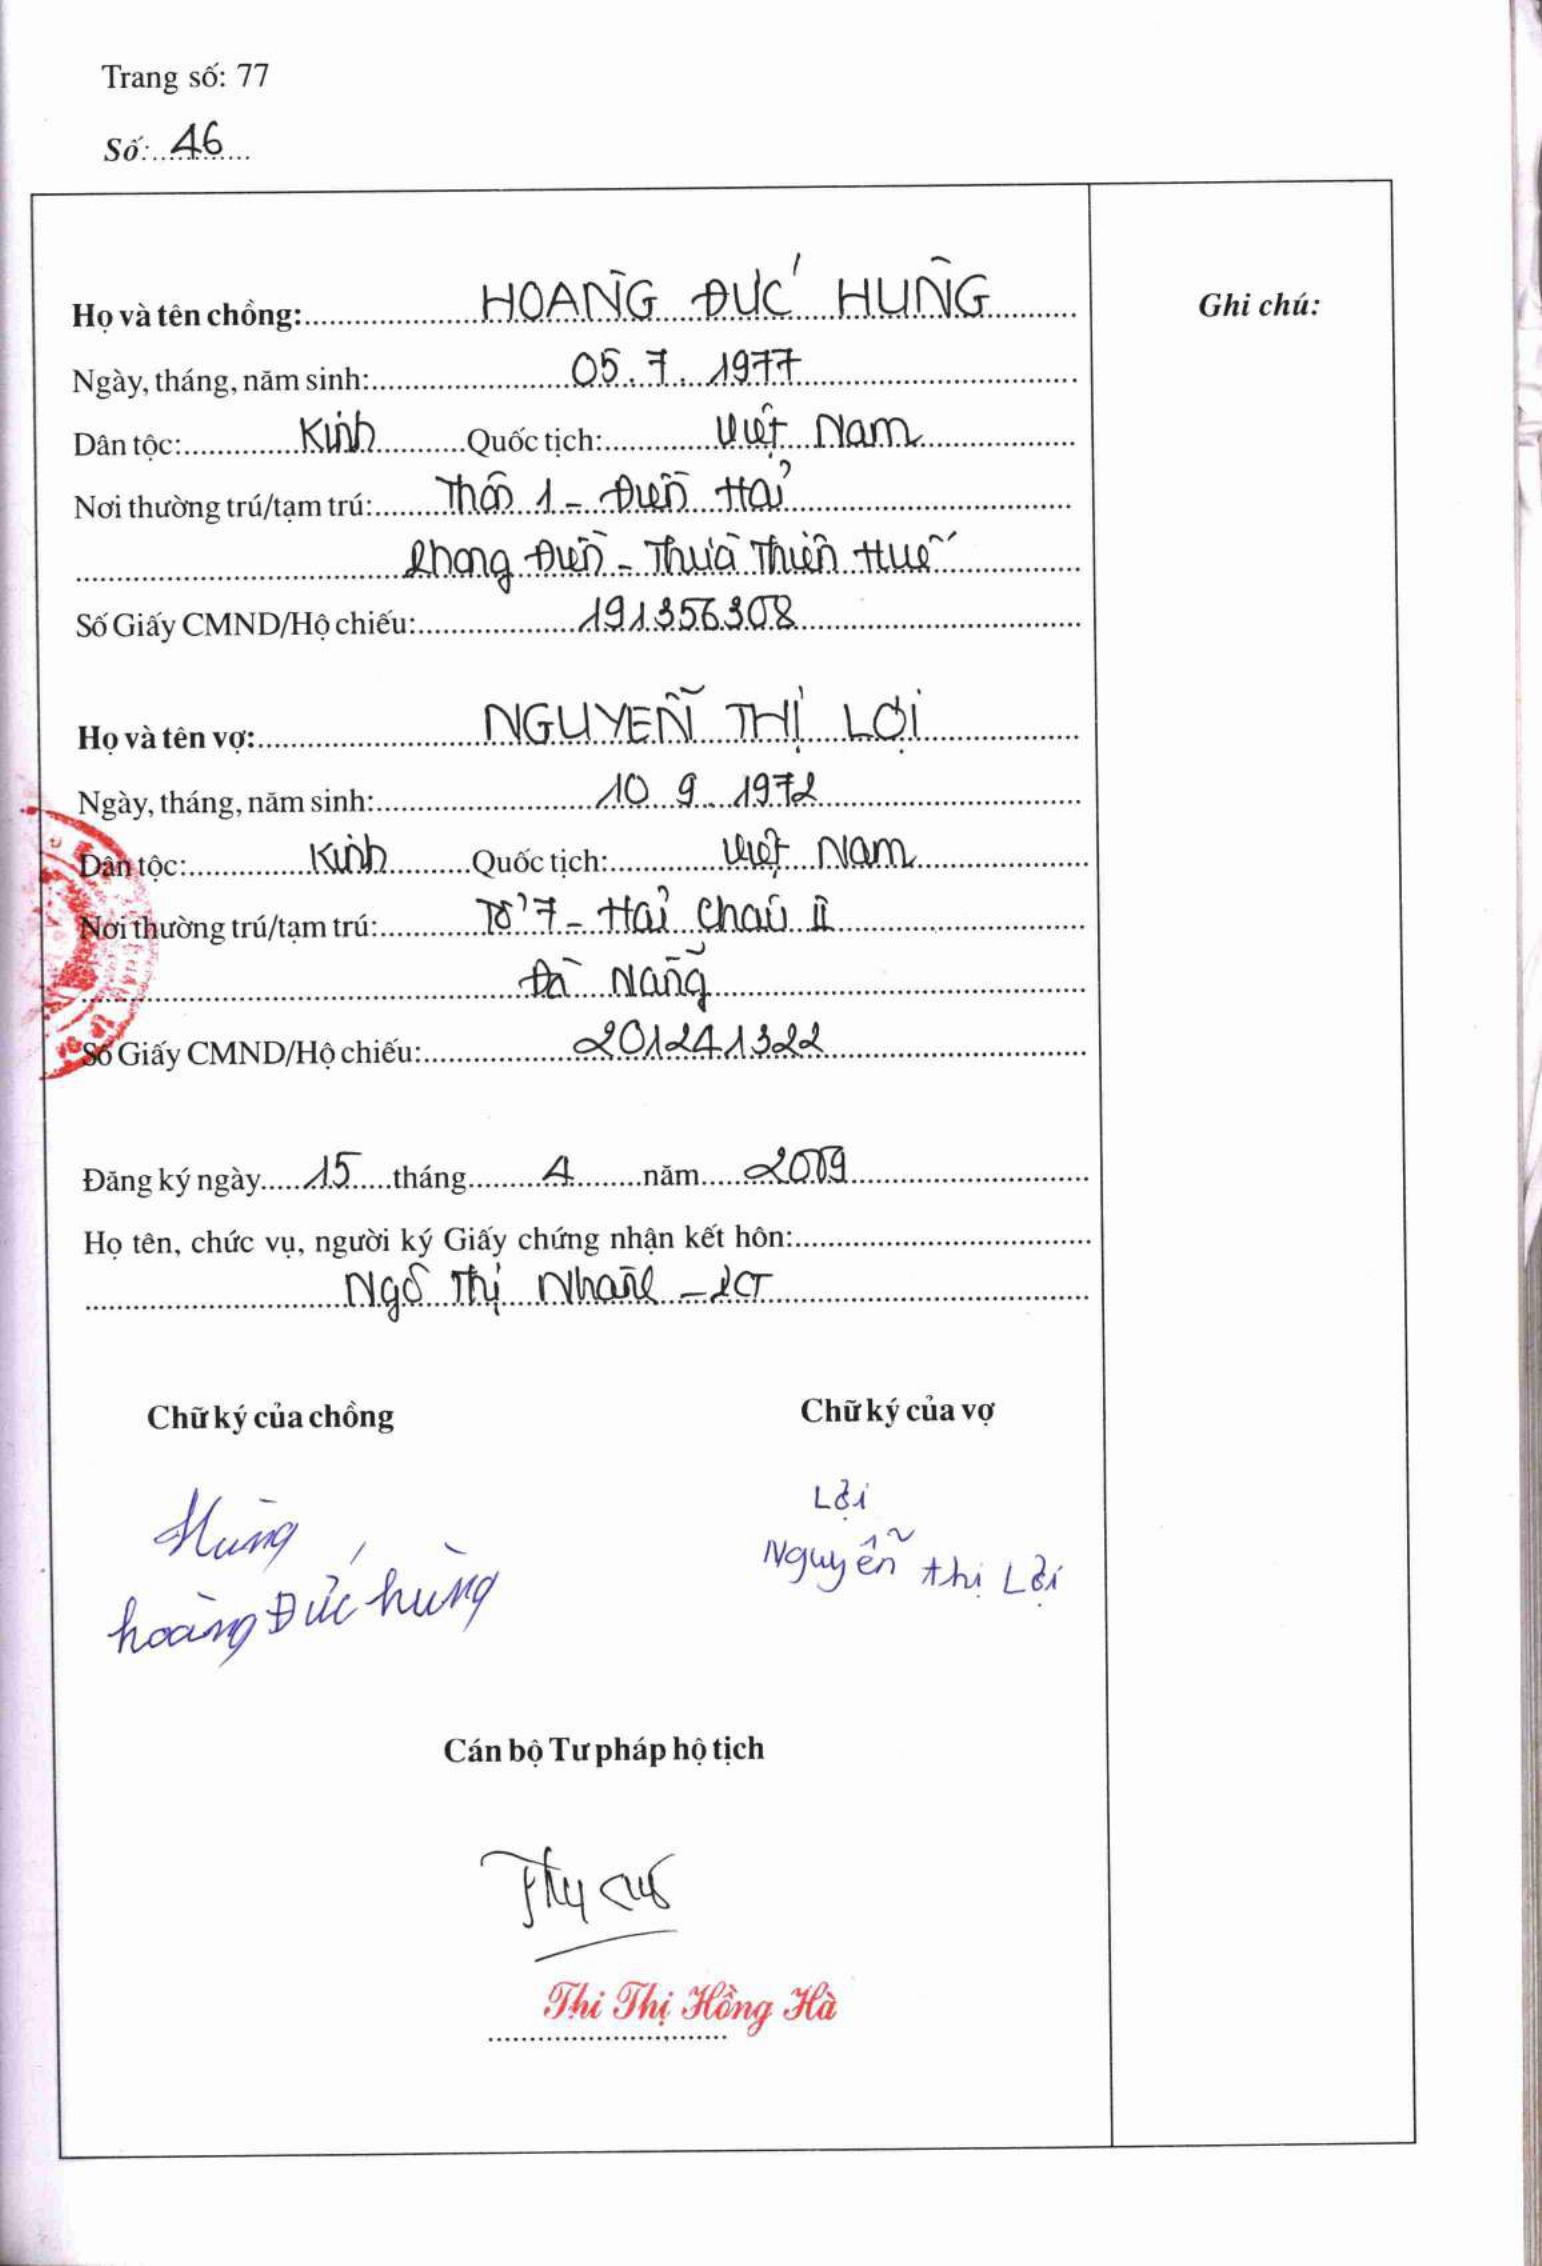 Trang số: 77
Số: 46
Họ và tên chồng: HOÀNG ĐỨC HÙNG
Ghi chú:
Ngày, tháng, năm sinh: 05.7.1977
Dân tộc: Kinh Quốc tịch: Việt Nam
Nơi thường trú/tạm trú: Thôn 1 - Điền Hải
Phong Điền - Thừa Thiên Huế
Số Giấy CMND/Hộ chiếu: 191356308
Họ và tên vợ: NGUYỄN THỊ LỢI
Ngày, tháng, năm sinh: 10 9 1972
Dân tộc: Kinh Quốc tịch: Việt Nam
Nơi thường trú/tạm trú: Tổ 7 - Hải Châu II
Đà Nẵng
Số Giấy CMND/Hộ chiếu: 201241322
Đăng ký ngày 15 tháng 4 năm 2009
Họ tên, chức vụ, người ký Giấy chứng nhận kết hôn:
Ngô Thị - PCT
Chữ ký của chồng Chữ ký của vợ
Hùng Lợi
Hoàng Đức Hùng Nguyễn Thị Lợi
Cán bộ Tư pháp hộ tịch
Thi Thị Hồng Hà